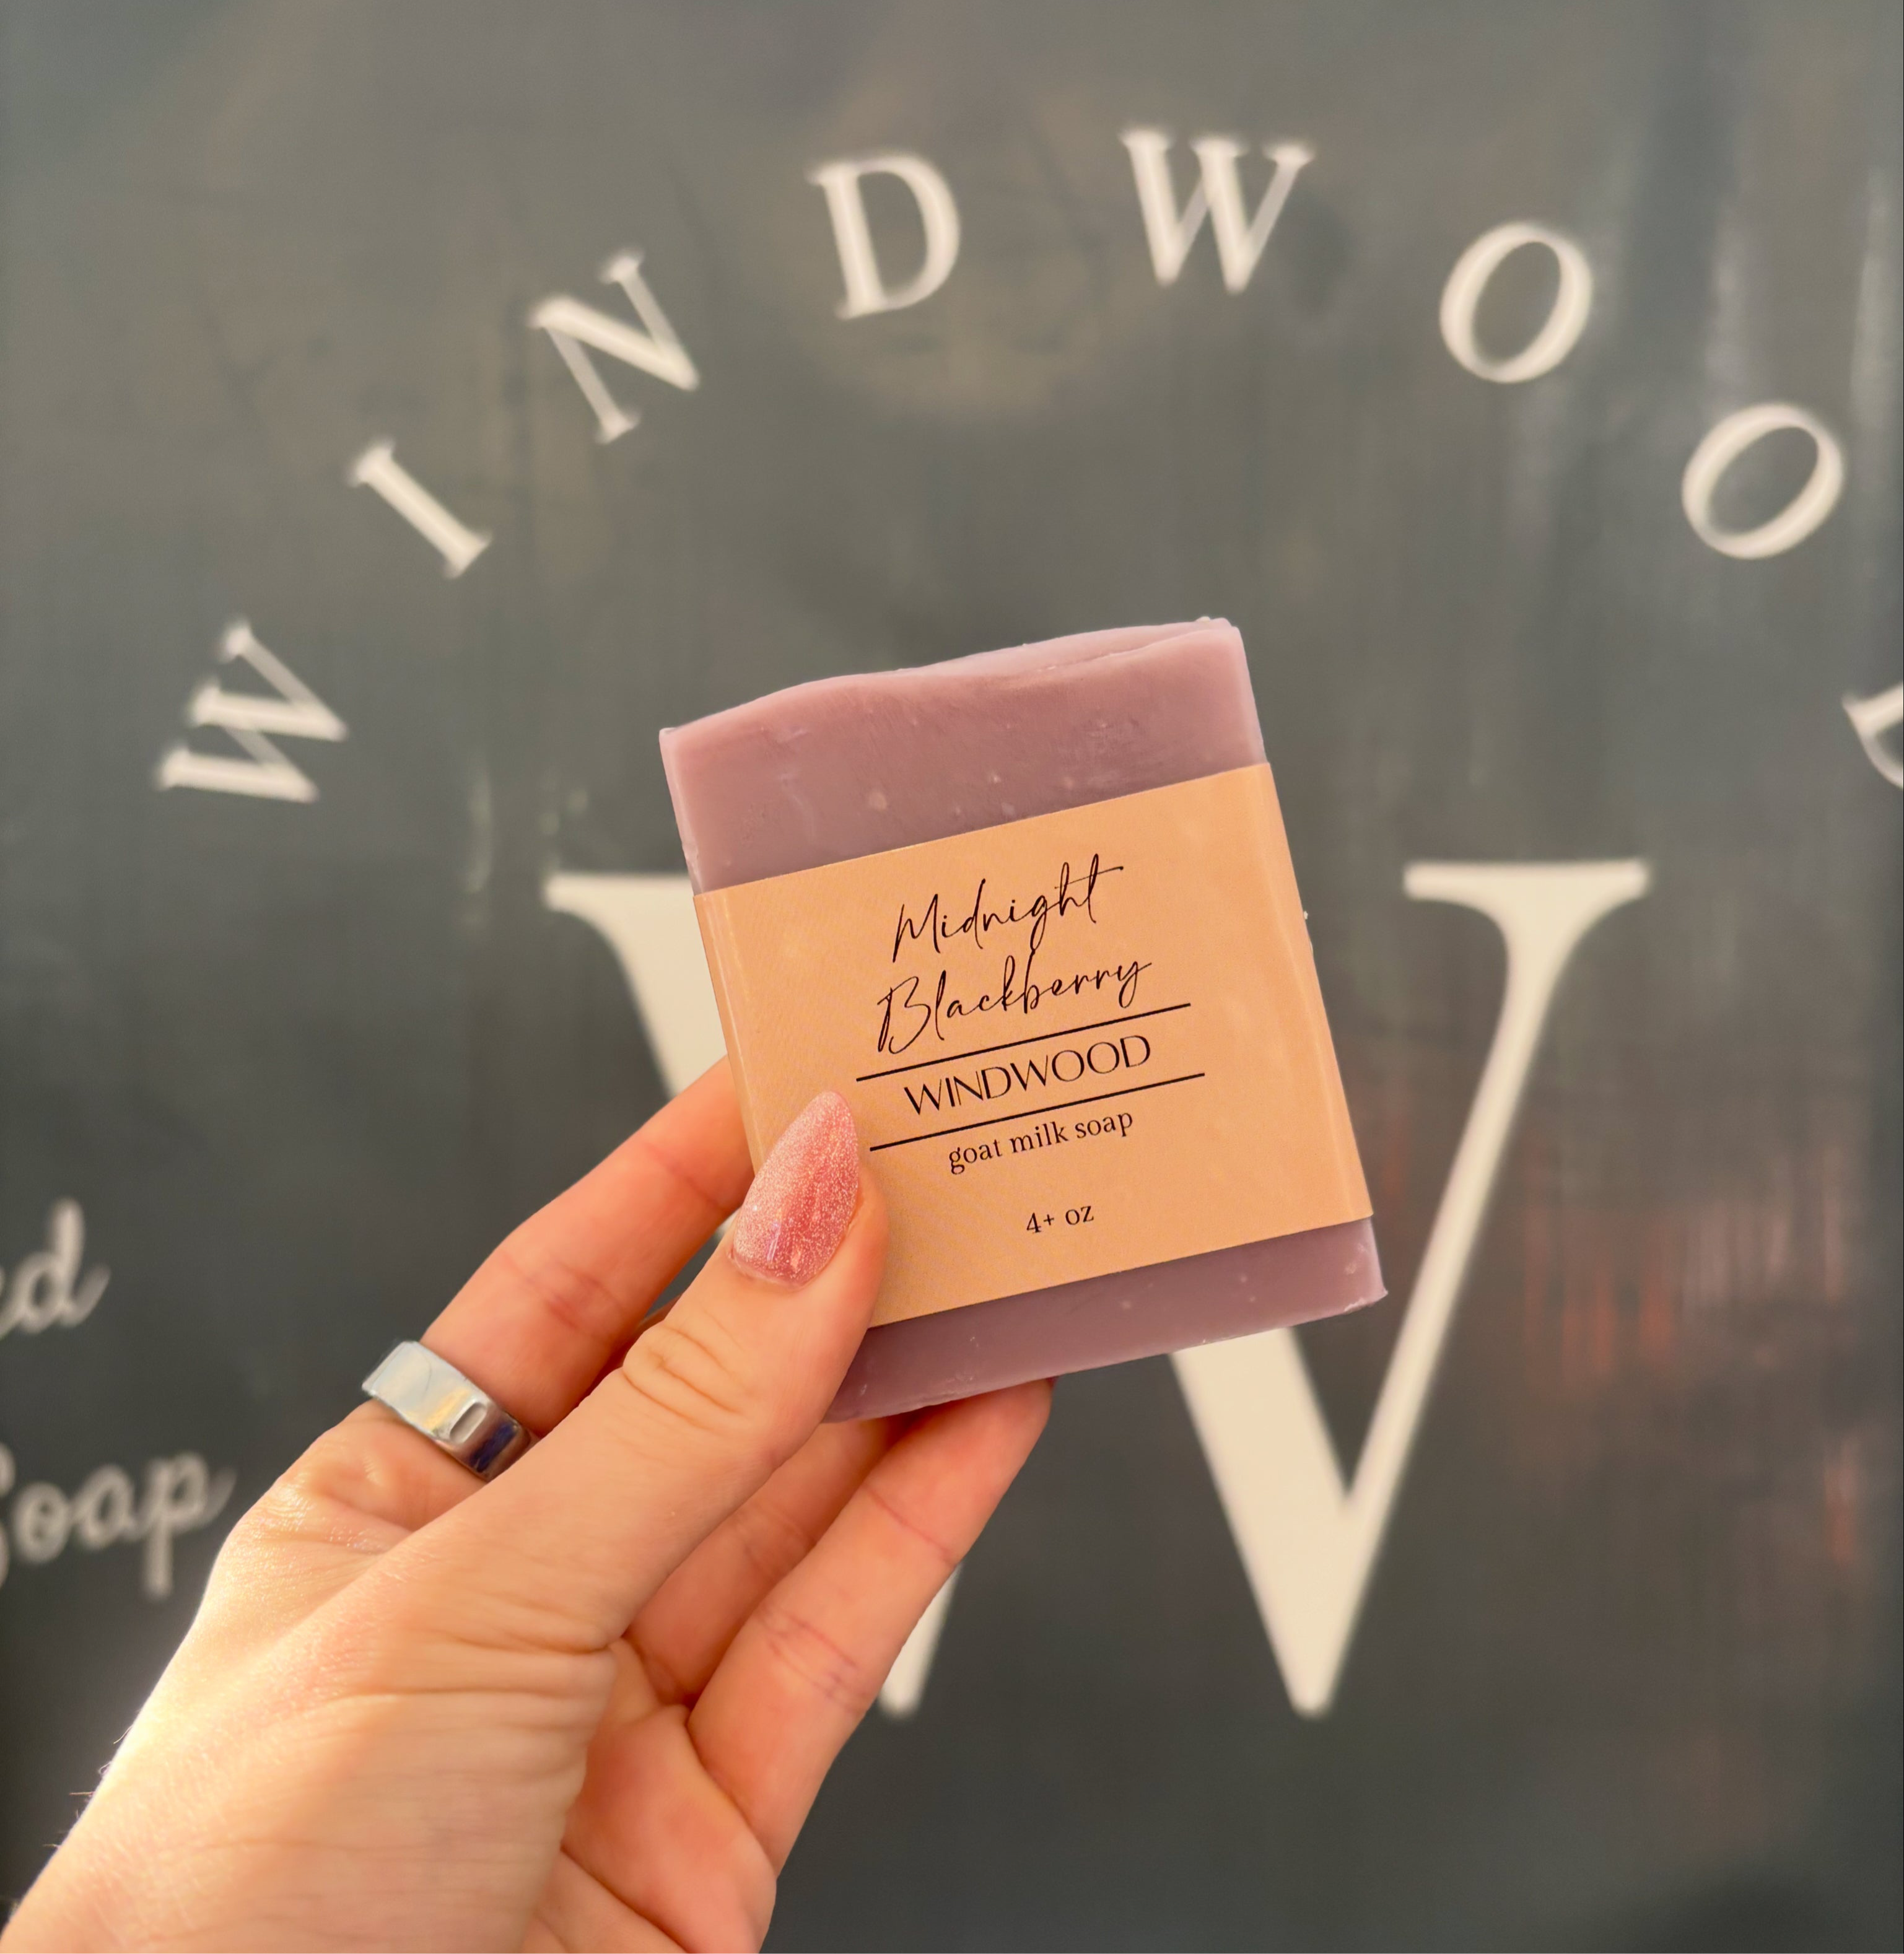 WINDWOOD
W
Midnight
Blackberry
WINDWOOD
goat milk soap
4+ oz
Soap